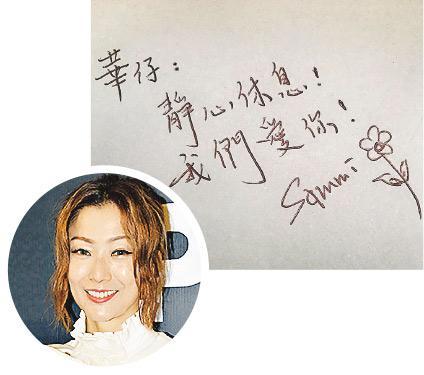 華仔：
靜心休息！
我們愛你！
Sammi